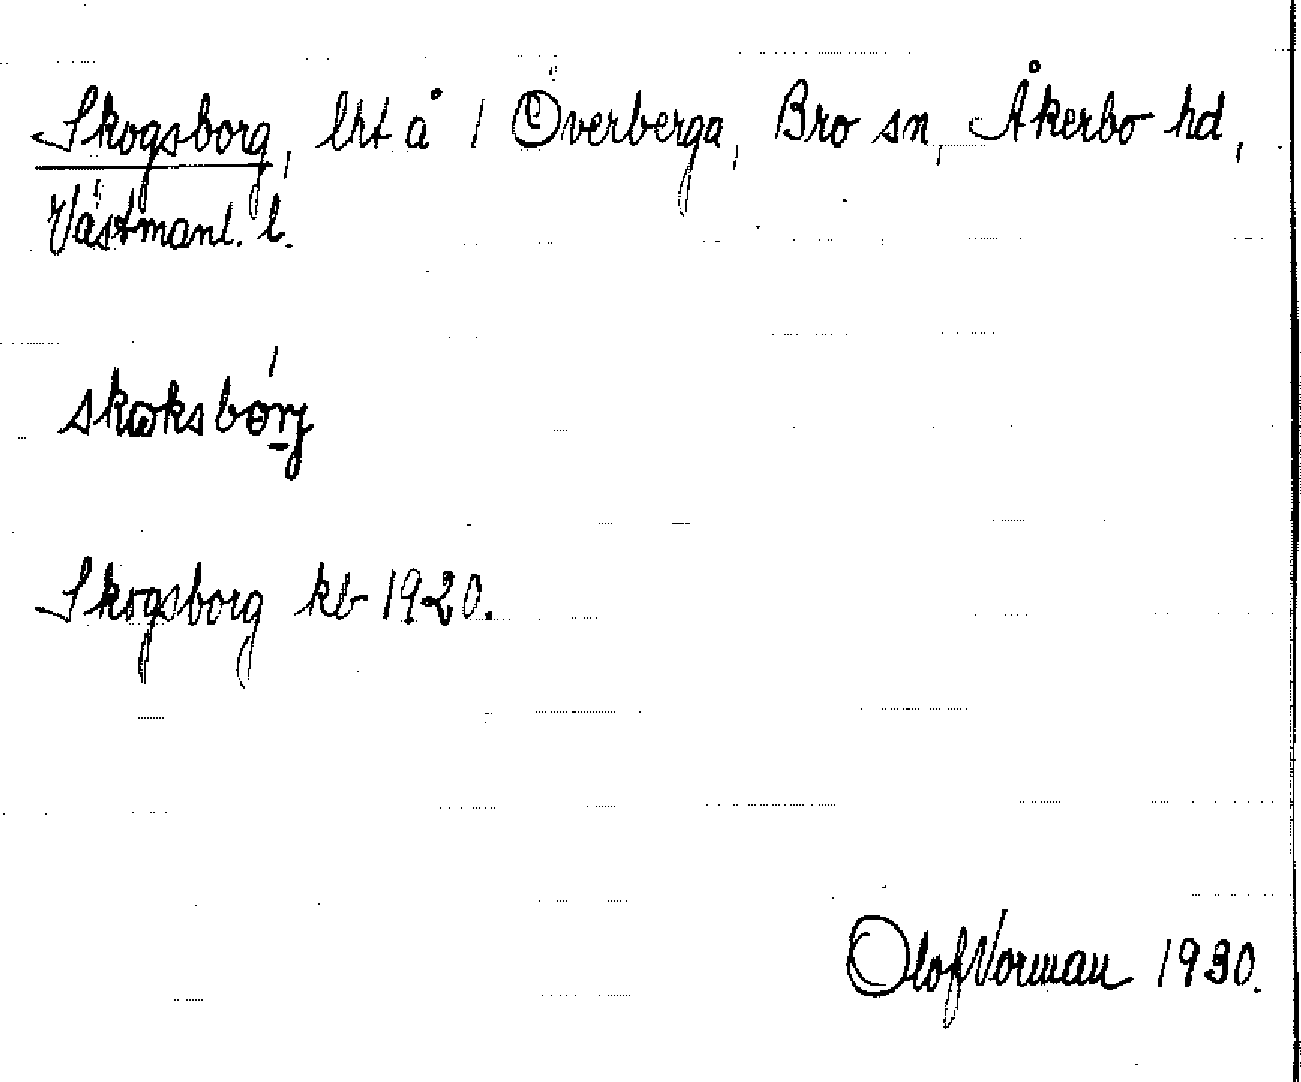 Skogsborg, lht å 1 Överberga, Bro sn, Åkerbo hd,
Västmanl. l.
skoksbörj
Skogsborg kb 1920.
Olof Norman 1930.